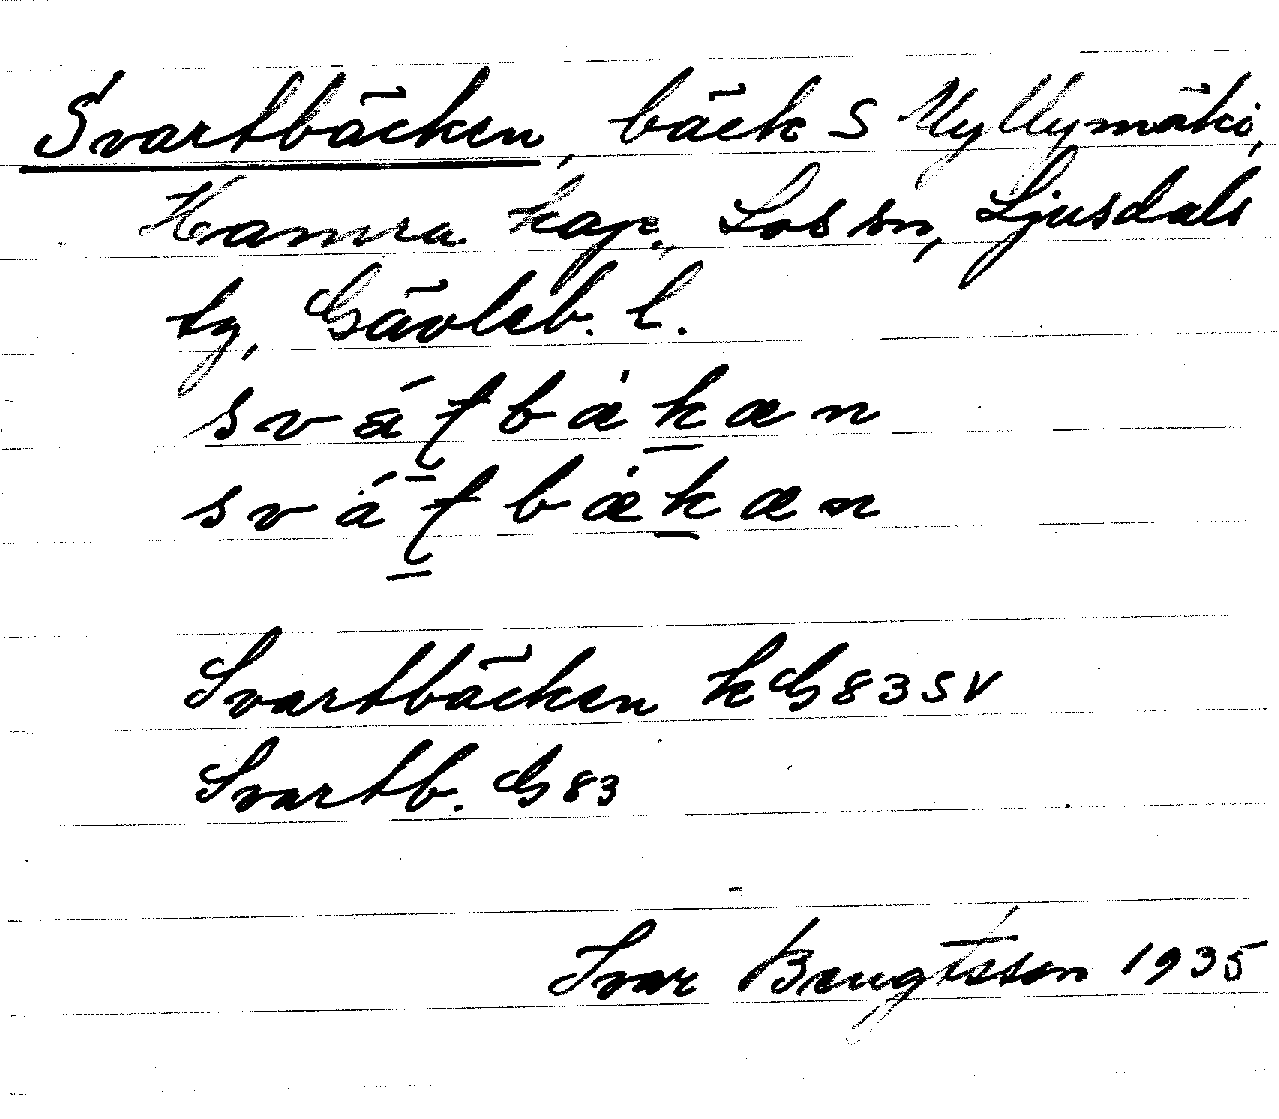 Svartbäcken, bäck S Myllymäki,
Hamra kap., Los sn, Ljusdals
tg, Gävleb. l.
svát̠bækæn
svát̠bækæn
Svartbäcken kG83SV
Svartb. G83
Ivar Bengtsson 1935